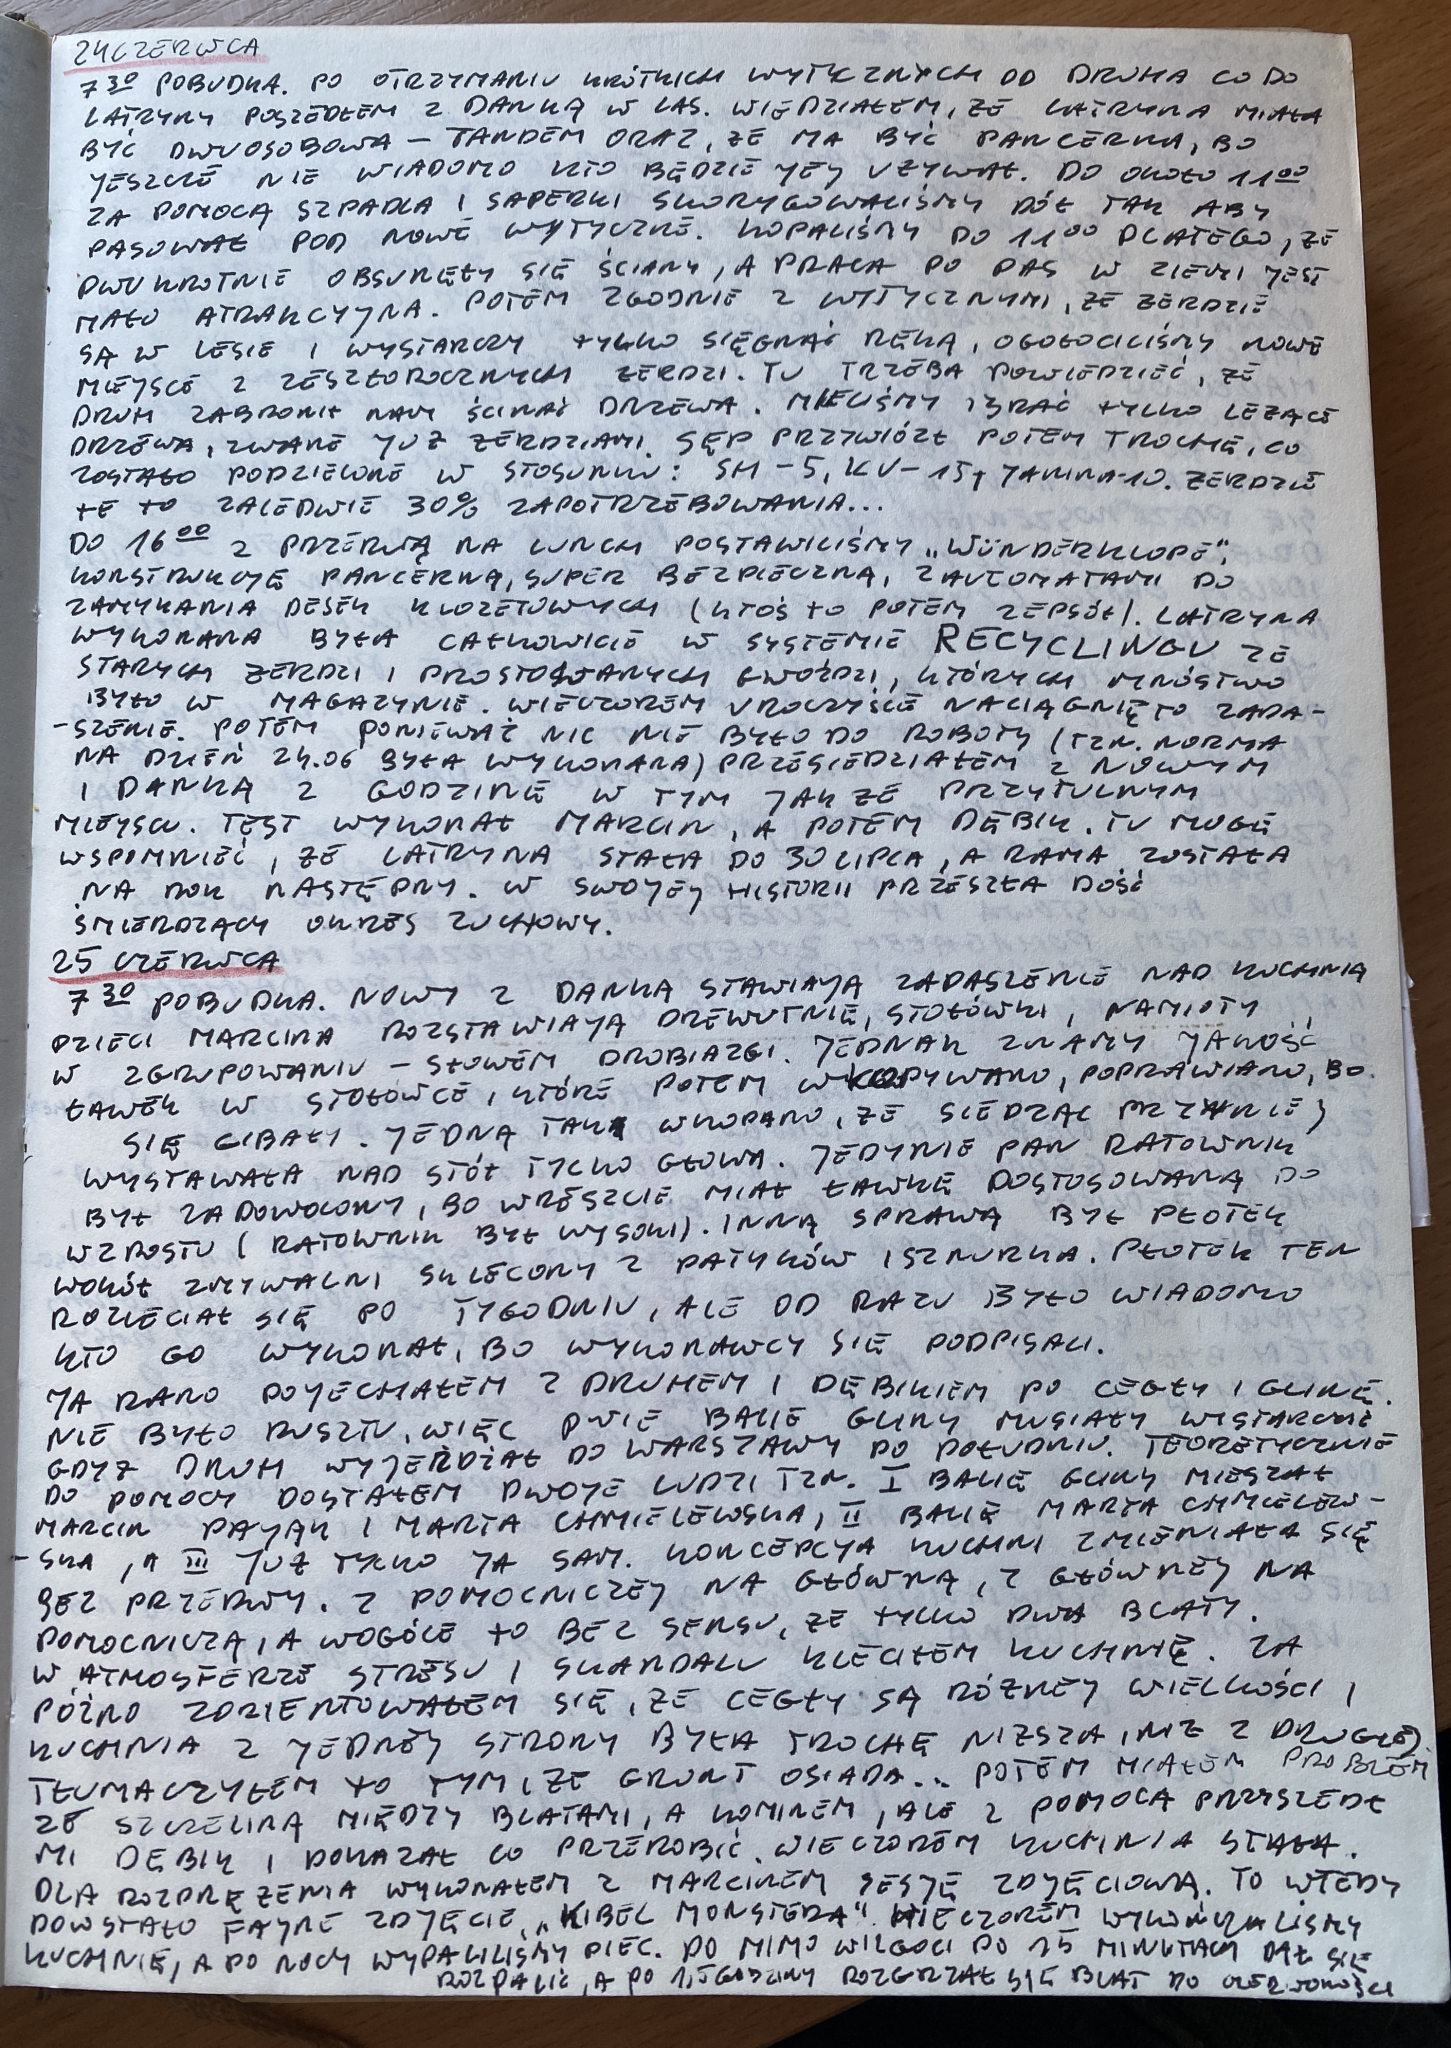 24 CZERWCA
7 30 POBUDKA. PO OTRZYMANIU KRÓTKICH WYTYCZNYCH OD DRUHA CO DO
LATRYNY POSZEDŁEM Z DANKĄ W LAS. WIEDZIAŁEM, ŻE LATRYNA MIAŁA
BYĆ DWUOSOBOWA – TANDEM ORAZ, ŻE MA BYĆ PANCERNA, BO
JESZCZE NIE WIADOMO KTO BĘDZIE JEJ UŻYWAŁ. DO OKOŁO 11 00
ZA POMOCĄ SZPADLA I SAPERKI SKORYGOWALIŚMY DÓŁ TAK ABY
PASOWAŁ POD NOWE WYTYCZNE. KOPALIŚMY DO 11 00 DLATEGO, ŻE
DWUKROTNIE OBSUNĘŁY SIĘ ŚCIANY, A PRACA PO PAS W ZIEMI JEST
MAŁO ATRAKCYJNA. POTEM ZGODNIE Z WYTYCZNYMI, ŻE ŻERDZIE
SĄ W LESIE I WYSTARCZY TYLKO SIĘGNĄĆ RĘKĄ, OGOŁOCILIŚMY NOWE
MIEJSCE Z ZESZŁOROCZNYCH ŻERDZI. TU TRZEBA POWIEDZIEĆ, ŻE
DRUH ZABRONIŁ NAM ŚCINAĆ DRZEWA. MIELIŚMY BRAĆ TYLKO LEŻĄCE
DRZEWA, ZWANE JUŻ ŻERDZIAMI. SĘP PRZYWIÓZŁ POTEM TROCHĘ, CO
ZOSTAŁO PODZIELONE W STOSUNKU: SH – 5, KV – 15, JANINA – 10. ŻERDZIE
TE TO ZALEDWIE 30% ZAPOTRZEBOWANIA...
DO 16 00 Z PRZERWĄ NA LUNCH POSTAWILIŚMY „WUNDERKLOPE",
KONSTRUKCJĘ PANCERNĄ, SUPER BEZPIECZNĄ, Z AUTOMATAMI DO
ZAMYKANIA DESEK KLOZETOWYCH (KTOŚ TO POTEM ZEPSÓŁ). LATRYNA
WYKONANA BYŁA CAŁKOWICIE W SYSTEMIE RECYCLINGU ZE
STARYCH ŻERDZI I PROSTOWANYCH GWOŹDZI, KTÓRYCH MNÓSTWO
BYŁO W MAGAZYNIE. WIECZOREM UROCZYŚCIE NACIĄGNIĘTO ZADA-
-SZENIE. POTEM PONIEWAŻ NIC NIE BYŁO DO ROBOTY (TZN. NORMA
NA DZIEŃ 24.06 BYŁA WYKONANA) PRZESIEDZIAŁEM Z NOWYM
I DANKĄ 2 GODZINĘ W TYM JAKŻE PRZYTULNYM
MIEJSCU. TEST WYKONAŁ MARCIN, A POTEM DĘBIK. TU MOGĘ
WSPOMNIEĆ, ŻE LATRYNA STAŁA DO 30 LIPCA, A RAMA ZOSTAŁA
NA ROK NASTĘPNY. W SWOJEJ HISTORII PRZESZŁA DOŚĆ
ŚMIERDZĄCY OKRES ZUCHOWY.
25 CZERWCA
7 30 POBUDKA. NOWY Z DANKĄ STAWIAJĄ ZADASZENIE NAD KUCHNIĄ
DZIECI MARCINA ROZSTAWIAJĄ DREWUTNIĘ, STOŁÓWKI, NAMIOTY
W ZGRUPOWANIU – SŁOWEM DROBIAZGI. JEDNAK ZNAMY JAKOŚĆ
ŁAWEK W STOŁÓWCE, KTÓRE POTEM WKOPYWANO, POPRAWIANO, BO
SIĘ GIBAŁY. JEDNĄ TAK WKOPANO, ŻE SIEDZĄC PRZY NIEJ
WYSTAWAŁA NAD STÓŁ TYLKO GŁOWA. JEDYNIE PAN RATOWNIK
BYŁ ZADOWOLONY, BO WRESZCIE MIAŁ ŁAWKĘ DOSTOSOWANĄ DO
WZROSTU (RATOWNIK BYŁ WYSOKI). INNĄ SPRAWĄ BYŁ PŁOTEK
WOKÓŁ ZMYWALNI SKLECONY Z PATYKÓW I SZNURKA. PŁOTEK TEN
ROZLECIAŁ SIĘ PO TYGODNIU, ALE OD RAZU BYŁO WIADOMO
KTO GO WYKONAŁ, BO WYKONAWCY SIĘ PODPISALI.
JA RANO POJECHAŁEM Z DRUHEM I DĘBIKIEM PO CEGŁY I GLINĘ.
NIE BYŁO RUSZTU, WIĘC DWIE BALIE GLINY MUSIAŁY WYSTARCZYĆ
GDYŻ DRUH WYJEŻDŻAŁ DO WARSZAWY DO POŁUDNIU. TEORETYCZNIE
DO POMOCY DOSTAŁEM DWOJE LUDZI TZN. I BALIĘ GLINY MIESZAŁ
MARCIN PAJĄK I MARTA CHMIELEWSKA, II BALIĘ MARTA CHMIELEW-
-SKA, A III JUŻ TYLKO JA SAM. KONCEPCJA KUCHNI ZMIENIAŁA SIĘ
BEZ PRZERWY. Z POMOCNICZEJ NA GŁÓWNĄ, Z GŁÓWNEJ NA
POMOCNICZĄ, A WOGÓLE TO BEZ SENSU, ŻE TYLKO DWA BLATY.
W ATMOSFERZE STRESU I SKANDALU KLECIŁEM KUCHNIĘ. ZA
PÓŹNO ZORIENTOWAŁEM SIĘ, ŻE CEGŁY SĄ RÓŻNEJ WIELKOŚCI I
KUCHNIA Z JEDNEJ STRONY BYŁA TROCHĘ NIŻSZA, NIŻ Z DRUGIEJ
TŁUMACZYŁEM TO TYM, ŻE GRUNT OSIADA... POTEM MIAŁEM PROBLEM
ZE SZCZELINĄ MIĘDZY BLATAMI, A KOMINEM, ALE Z POMOCĄ PRZYSZEDŁ
MI DĘBIK I POKAZAŁ CO PRZEROBIĆ. WIECZOREM KUCHNIA STAŁA.
DLA ROZPRĘŻENIA WYKONAŁEM Z MARCINEM SESJĘ ZDJĘCIOWĄ. TO WTEDY
POWSTAŁO FAJNE ZDJĘCIE „KIBEL MONSTERA". WIECZOREM WYKOŃCZALIŚMY
KUCHNIĘ, A PO NOCY WYPALILIŚMY PIEC. PO MIMO WILGOCI PO 15 MINUTACH DAŁ SIĘ
ROZPALIĆ, A PO 1,5 GODZINY ROZGRZAŁ SIĘ BLAT DO CZERWONOŚCI